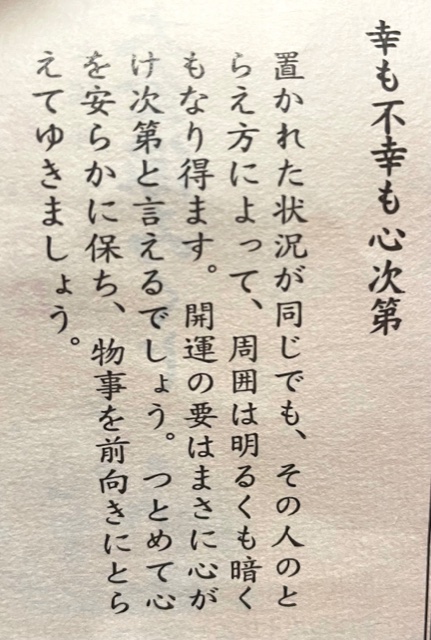 幸も不幸も心次第
置かれた状況が同じでも、その人のと
らえ方によって、周囲は明るくも暗く
もなり得ます。開運の要はまさに心が
け次第と言えるでしょう。つとめて心
を安らかに保ち、物事を前向きにとら
えてゆきましょう。